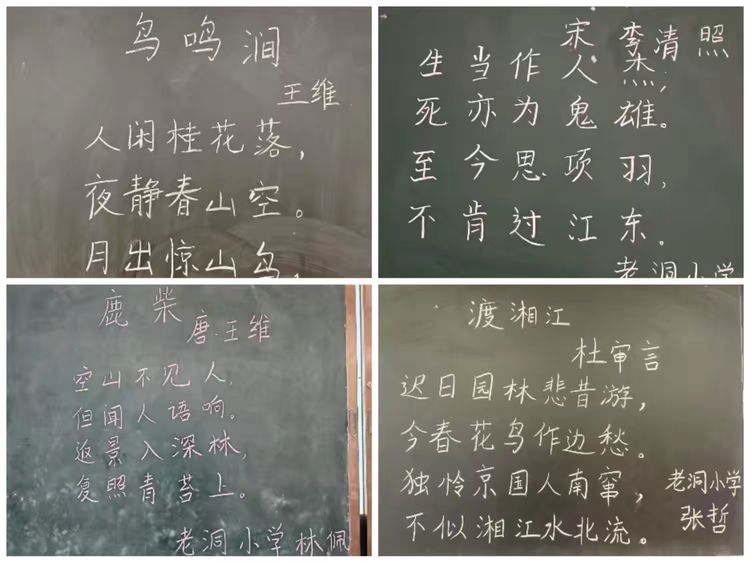 鸟鸣涧
王维
人闲桂花落，
夜静春山空。
月出惊山鸟，
宋 李清照
生当作人杰，
死亦为鬼雄。
至今思项羽，
不肯过江东。
老洞小学
鹿柴
唐·王维
空山不见人，
但闻人语响。
返景入深林，
复照青苔上。
老洞小学林佩
渡湘江
杜审言
迟日园林悲昔游，
今春花鸟作边愁。
独怜京国人南窜，
不似湘江水北流。
老洞小学
张哲